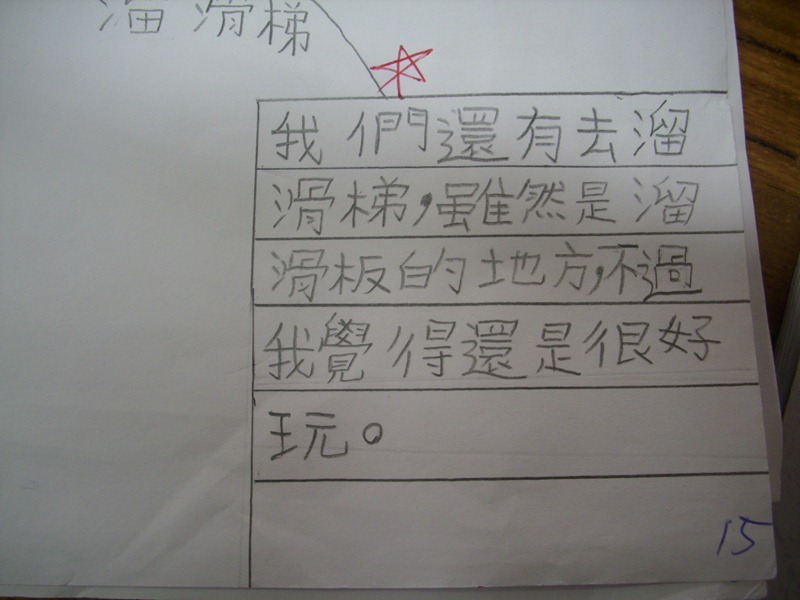 溜滑梯
我們還有去溜
滑梯，雖然是溜
滑板的地方，不過
我覺得還是很好
玩。
15